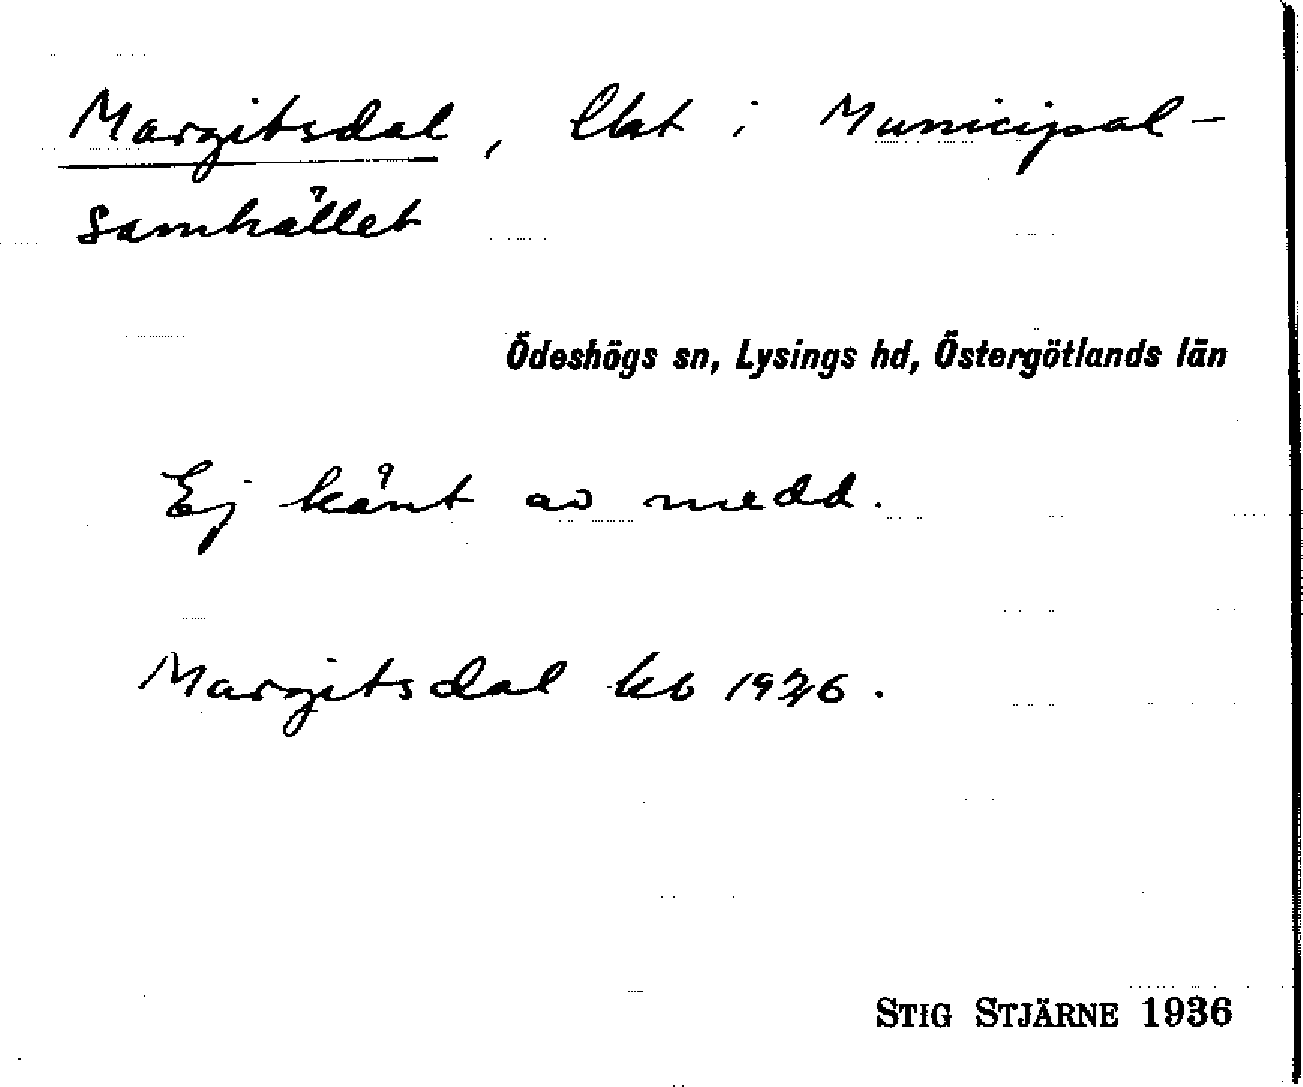 Margitsdal, lht i Municipal-
samhället
Ödeshögs sn, Lysings hd, Östergötlands län
Ej känt av medd.
Margitsdal kb 1936.
STIG STJÄRNE 1936